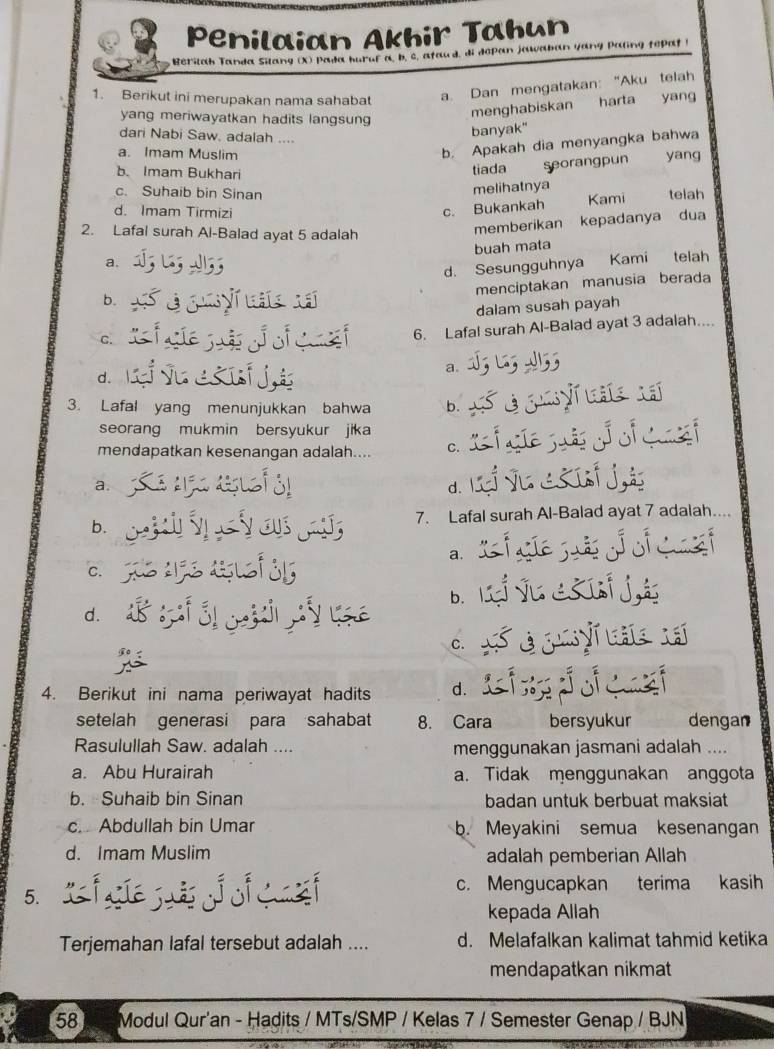 Penilaian Akhir Tahun
Berilah Tanda Silang (X) Pada huruf a, b, c, atau d, di depan jawaban yang paling tepat !
1. Berikut ini merupakan nama sahabat
yang meriwayatkan hadits langsung
dari Nabi Saw. adalah ....
a. Imam Muslim
b. Imam Bukhari
c. Suhaib bin Sinan
d. Imam Tirmizi
2. Lafal surah Al-Balad ayat 5 adalah
a. وَوَالِدٍ وَمَا وَلَدَ
b. لَقَدْ خَلَقْنَا الْإِنْسَانَ فِي كَبَدٍ
c. أَيَحْسَبُ أَنْ لَنْ يَقْدِرَ عَلَيْهِ أَحَدٌ
d. يَقُولُ أَهْلَكْتُ مَالًا لُبَدًا
3. Lafal yang menunjukkan bahwa
seorang mukmin bersyukur jika
mendapatkan kesenangan adalah....
a. إِنْ أَصَابَتْهُ سَرَّاءُ شَكَرَ
b. وَلَيْسَ ذَلِكَ لِأَحَدٍ إِلَّا لِلْمُؤْمِنِ
c. وَإِنْ أَصَابَتْهُ ضَرَّاءُ صَبَرَ
d. عَجَبًا لِأَمْرِ الْمُؤْمِنِ إِنَّ أَمْرَهُ كُلَّهُ
خَيْرٌ
4. Berikut ini nama periwayat hadits
setelah generasi para sahabat
Rasulullah Saw. adalah ....
a. Abu Hurairah
b. Suhaib bin Sinan
c. Abdullah bin Umar
d. Imam Muslim
5. أَيَحْسَبُ أَنْ لَنْ يَقْدِرَ عَلَيْهِ أَحَدٌ
Terjemahan lafal tersebut adalah ....
a. Dan mengatakan: "Aku telah
menghabiskan harta yang
banyak"
b. Apakah dia menyangka bahwa
tiada seorangpun yang
melihatnya
c. Bukankah Kami telah
memberikan kepadanya dua
buah mata
d. Sesungguhnya Kami telah
menciptakan manusia berada
dalam susah payah
6. Lafal surah Al-Balad ayat 3 adalah....
a. وَوَالِدٍ وَمَا وَلَدَ
b. لَقَدْ خَلَقْنَا الْإِنْسَانَ فِي كَبَدٍ
c. أَيَحْسَبُ أَنْ لَنْ يَقْدِرَ عَلَيْهِ أَحَدٌ
d. يَقُولُ أَهْلَكْتُ مَالًا لُبَدًا
7. Lafal surah Al-Balad ayat 7 adalah....
a. أَيَحْسَبُ أَنْ لَنْ يَقْدِرَ عَلَيْهِ أَحَدٌ
b. يَقُولُ أَهْلَكْتُ مَالًا لُبَدًا
c. لَقَدْ خَلَقْنَا الْإِنْسَانَ فِي كَبَدٍ
d. أَيَحْسَبُ أَنْ لَمْ يَرَهُ أَحَدٌ
8. Cara bersyukur dengan
menggunakan jasmani adalah ....
a. Tidak menggunakan anggota
badan untuk berbuat maksiat
b. Meyakini semua kesenangan
adalah pemberian Allah
c. Mengucapkan terima kasih
kepada Allah
d. Melafalkan kalimat tahmid ketika
mendapatkan nikmat
58 Modul Qur'an - Hadits / MTs/SMP / Kelas 7 / Semester Genap / BJN